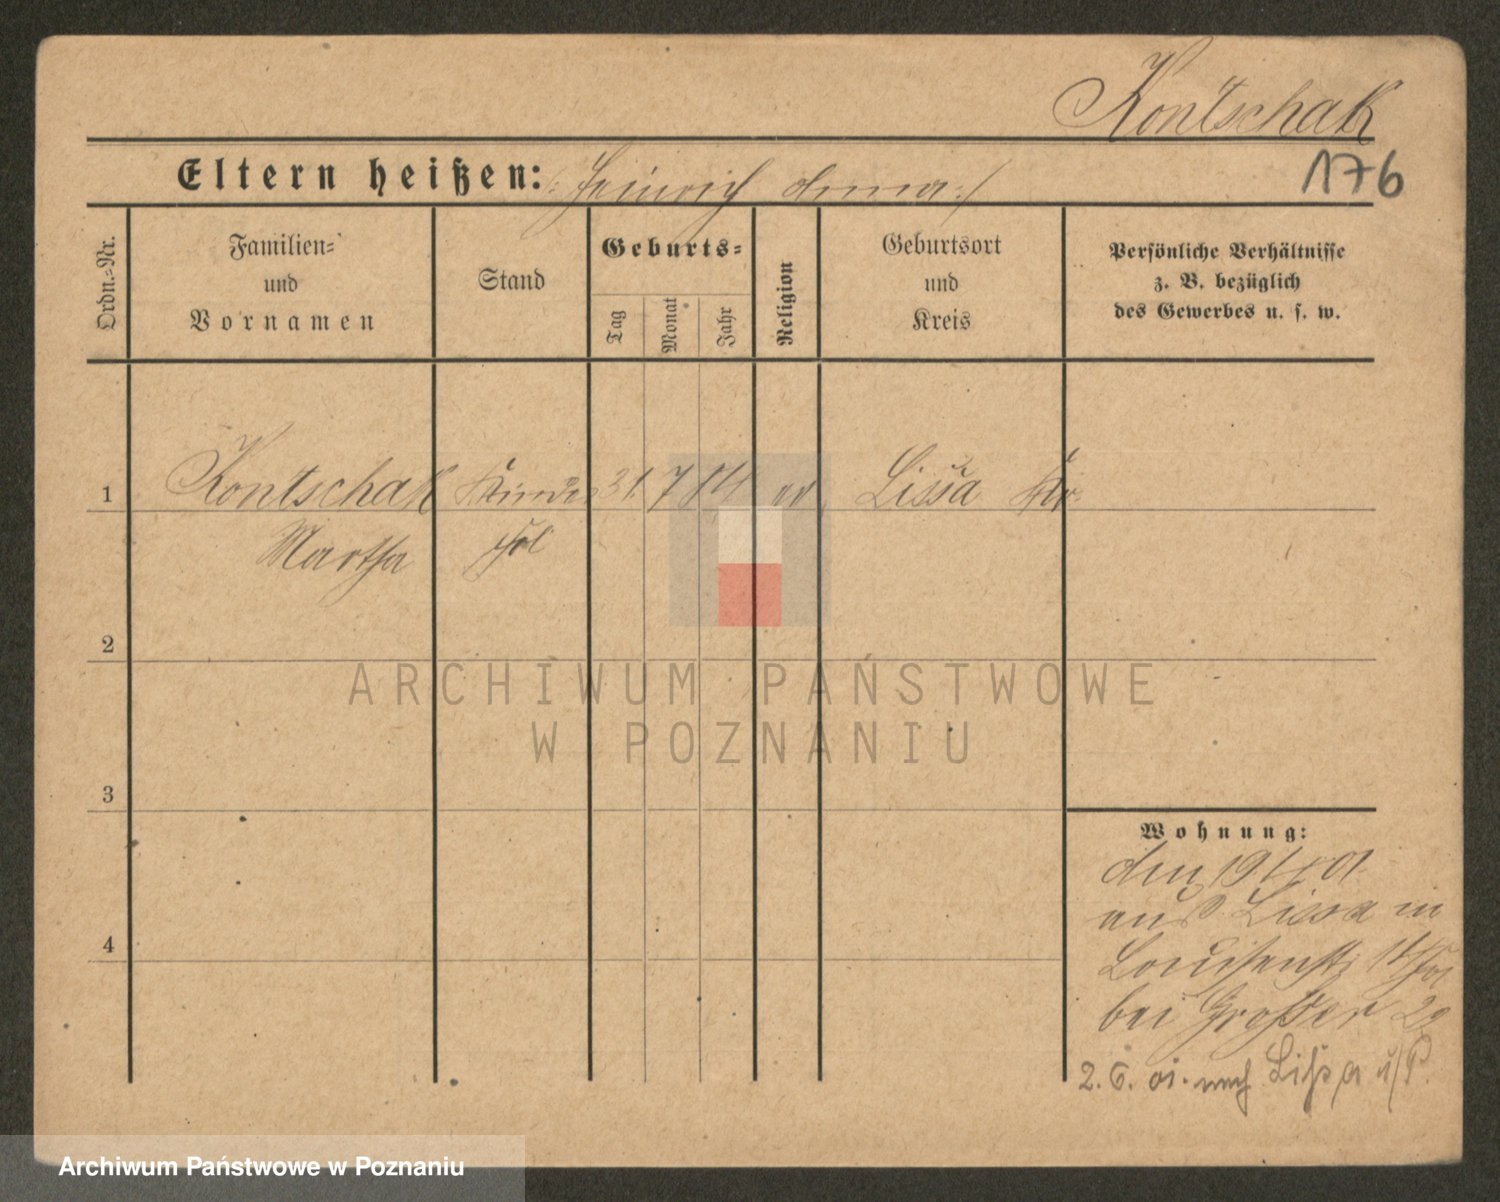 Kontschak
176
Eltern heißen: /: Heinrich Anna :/
Ordn.-Nr.
Familien-
und
Vornamen
Stand
Geburts-
Tag
Monat
Jahr
Religion
Geburtsort
und
Kreis
Persönliche Verhältnisse
z. B. bezüglich
des Gewerbes u. s. w.
1 Kontschak Kinder 31 7 84 ev Lissa
Martha frl
2
3
4
ARCHIWUM PAŃSTWOWE
W POZNANIU
Wohnung:
den 19/4 01.
aus Lissa in
Louisenstr
bei Großer
2. 6. 01. nach Lissa i/P.
Archiwum Państwowe w Poznaniu